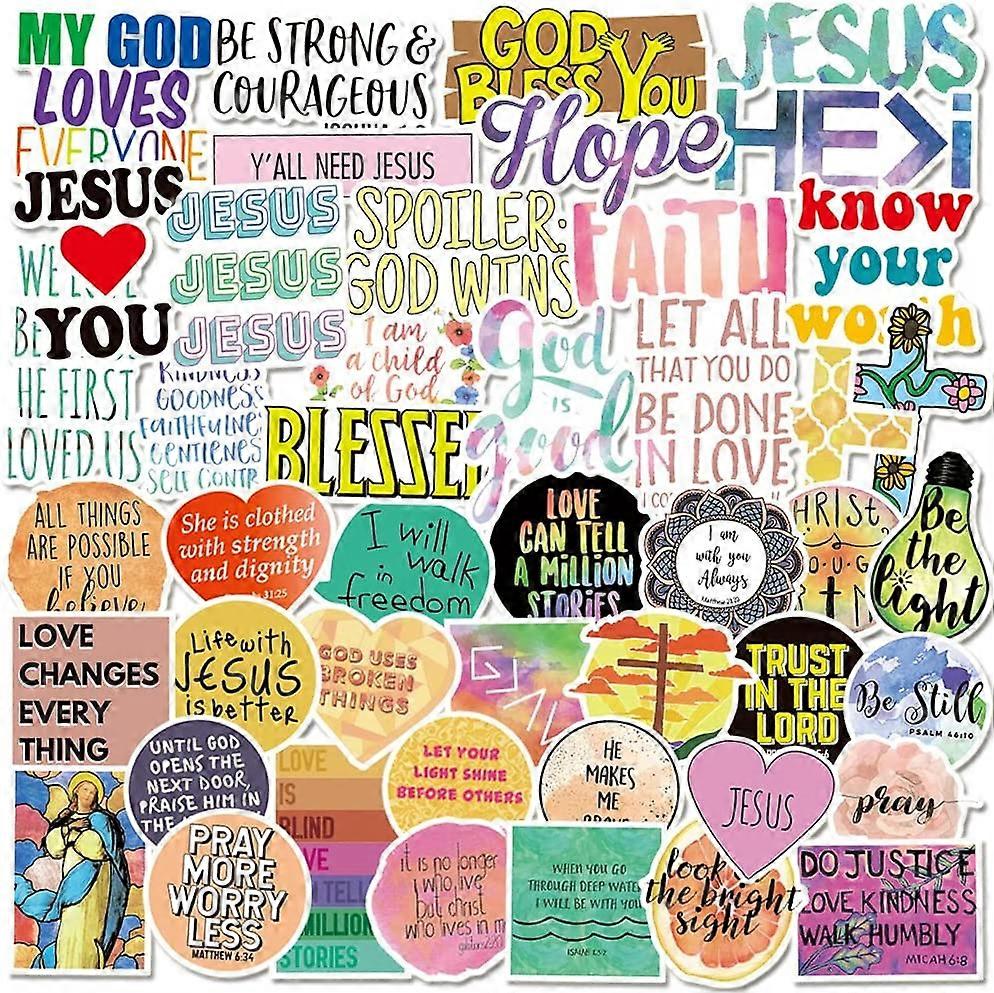 MY GOD
LOVES
EVERYONE
BE STRONG &
COURAGEOUS
GOD
BLESS YOU
JESUS
HE>i
Hope
Y'ALL NEED JESUS
JESUS
YOU
WE
BE
HE FIRST
LOVED US
JESUS
JESUS
JESUS
SPOILER:
GOD WINS
FAITH
know
your
worth
I am
a child
of God
God
IS
good
LET ALL
THAT YOU DO
BE DONE
IN LOVE
KINDNESS
GOODNESS
FAITHFULNE
GENTLENES
SELF CONTR
BLESSE
ALL THINGS
ARE POSSIBLE
IF YOU
believe
She is clothed
with strength
and dignity
31:25
I will
walk
in
freedom
LOVE
CAN TELL
A MILLION
STORIES
I am
with you
Always
Matthew 28:20
CHRIST
Be
the
light
LOVE
CHANGES
EVERY
THING
Life with
JESUS
is better
GOD USES
BROKEN
THINGS
TRUST
IN THE
LORD
Be Still
PSALM 46:10
UNTIL GOD
OPENS THE
NEXT DOOR,
PRAISE HIM IN
THE
LOVE
IS
BLIND
TELL
MILLION
STORIES
LET YOUR
LIGHT SHINE
BEFORE OTHERS
HE
MAKES
ME
JESUS
pray
PRAY
MORE
WORRY
LESS
MATTHEW 6:34
it is no longer
I who live
but christ
who lives in m
WHEN YOU GO
THROUGH DEEP WATE
I WILL BE WITH YOU
look
the bright
sight
DO JUSTICE
LOVE KINDNESS
WALK HUMBLY
MICAH 6:8